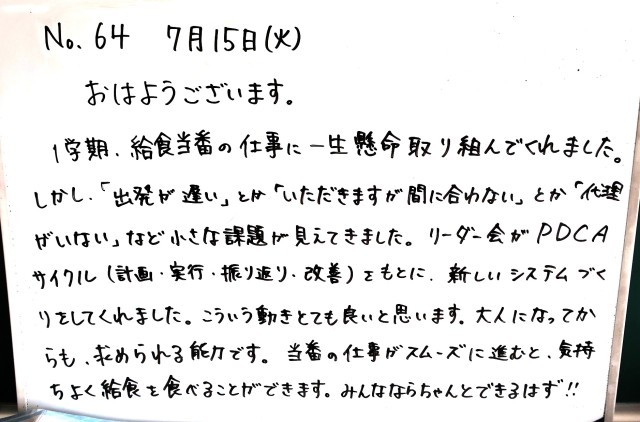 No. 64 7月15日(火)
おはようございます。
1学期、給食当番の仕事に一生懸命取り組んでくれました。
しかし、「出発が遅い」とか「いただきますが間に合わない」とか「代理
がいない」など小さな課題が見えてきました。リーダー会がPDCA
サイクル(計画・実行・振り返り・改善)をもとに、新しいシステムづく
りをしてくれました。こういう動きとても良いと思います。大人になってか
らも、求められる能力です。当番の仕事がスムーズに進むと、気持
ちよく給食を食べることができます。みんなならちゃんとできるはず!!